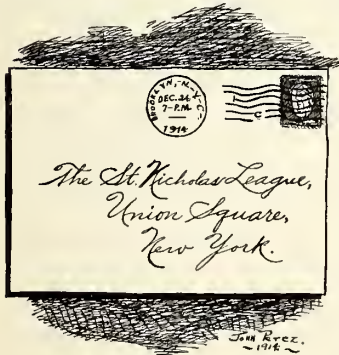 BROOKLYN, -N.-Y.-C-
DEC. 24
7-P.M.
1914
The St. Nicholas League,
Union Square,
New York.
JOHN PEREZ.
-1914-